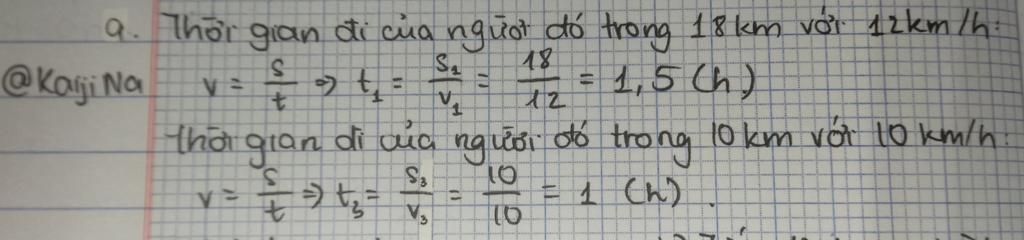 a. Thời gian đi của người đó trong 18km với 12km/h:
@KaijiNa
v = s/t => t₁ = s₁/v₁ = 18/12 = 1,5 (h)
Thời gian đi của người đó trong 10km với 10km/h:
v = s/t => t₃ = s₃/v₃ = 10/10 = 1 (h).